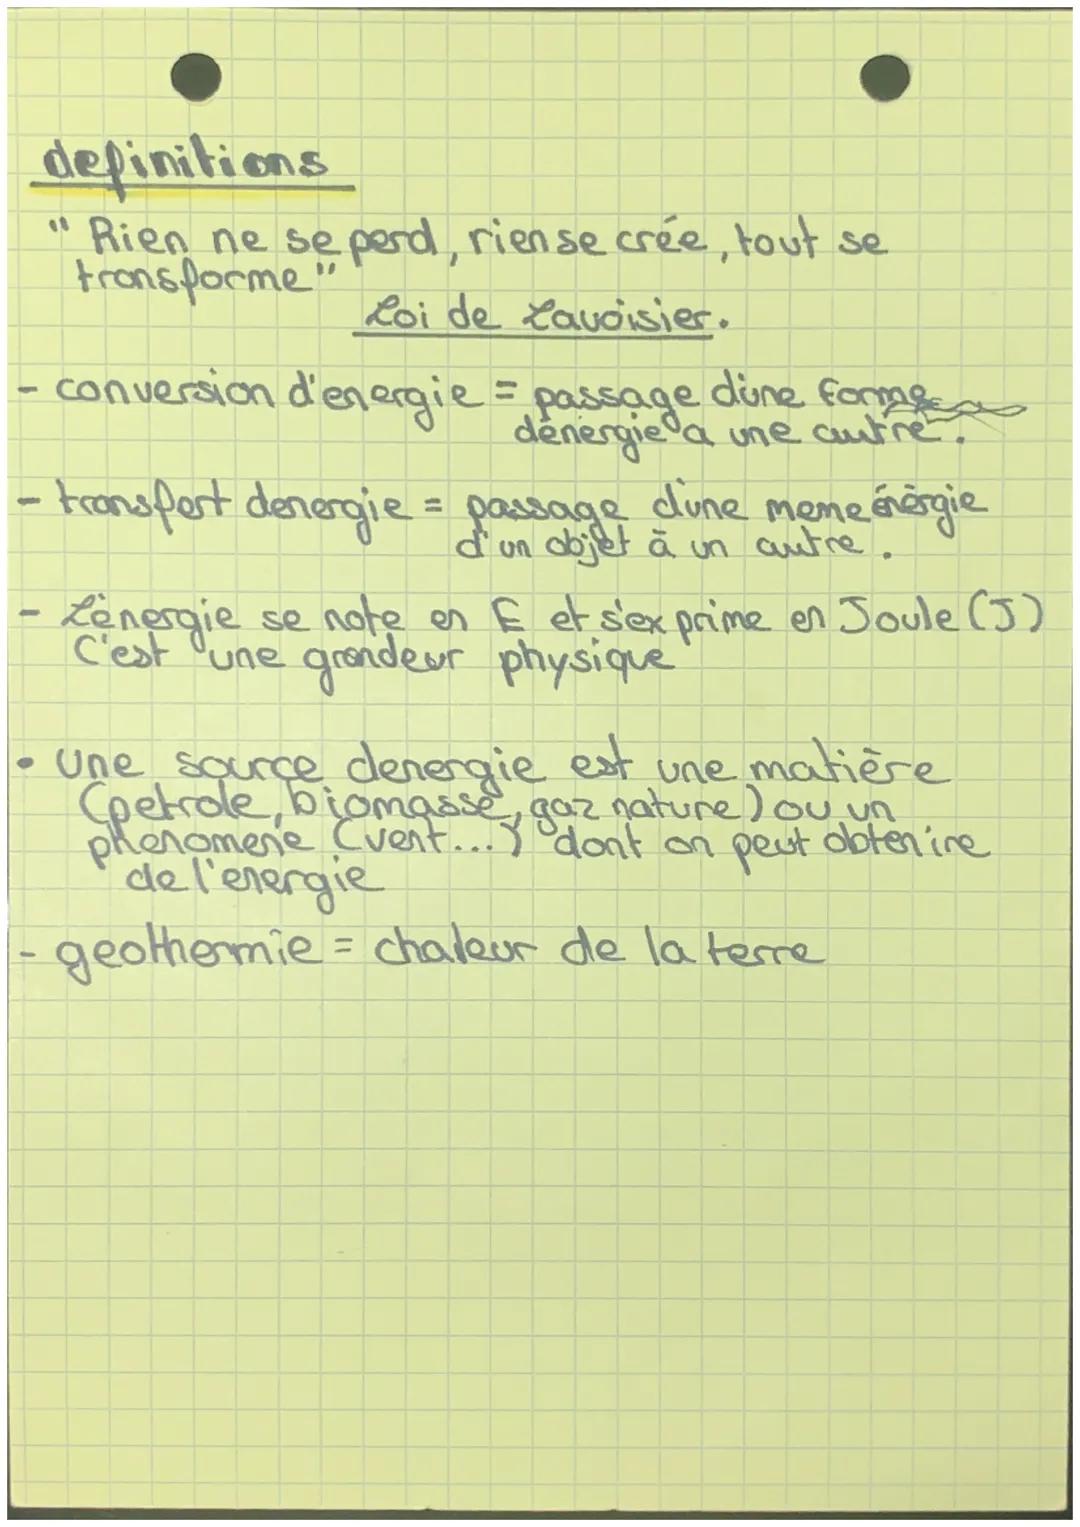 definitions
" Rien ne se perd, rien se crée, tout se
transforme"
Loi de Lavoisier.
- conversion d'energie = passage d'une forme
d'énergie a une autre.
- transfert denergie = passage d'une meme énérgie
d'un objet à un autre.
- L'énergie se note en E et s'exprime en Joule (J)
C'est une grandeur physique
• une source denergie est une matière
(petrole, biomasse, gaz nature) ou un
phenomene (vent...) dont on peut obtenire
de l'energie
- geothermie = chaleur de la terre